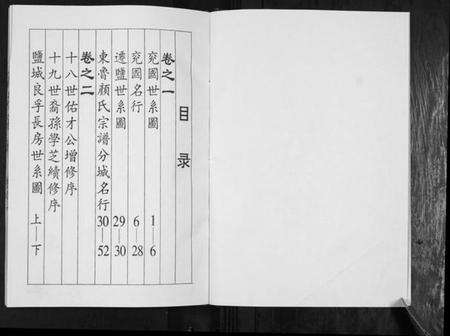 目录
卷之一
兖國世系圖 1—6
兖國名行 6 28
遷鹽世系圖 29—30
東魯顔氏宗譜分城名行 30—52
卷之二
十八世佑才公增修序
十九世裔孫學芝續修序
鹽城良孚長房世系圖 上—下